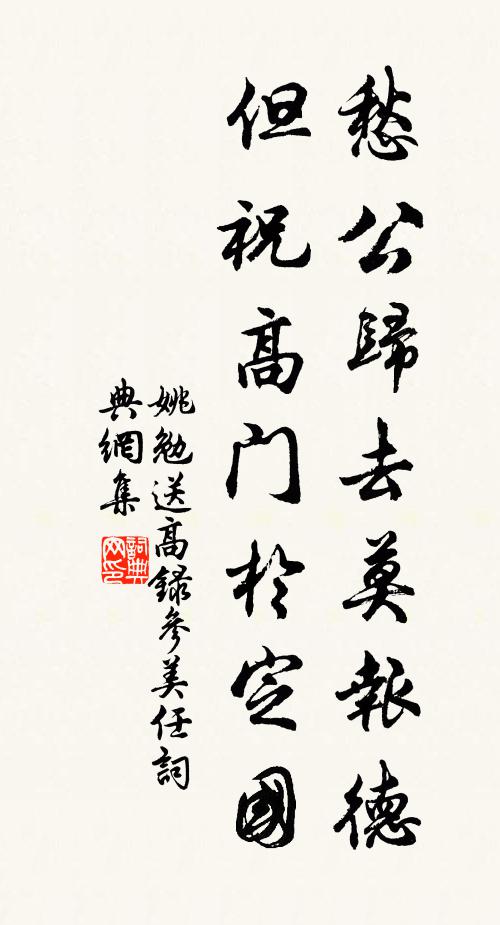 愁公歸去莫報德
但祝高門於定國
姚勉送高錄參美任詞
典網集
詞典網印